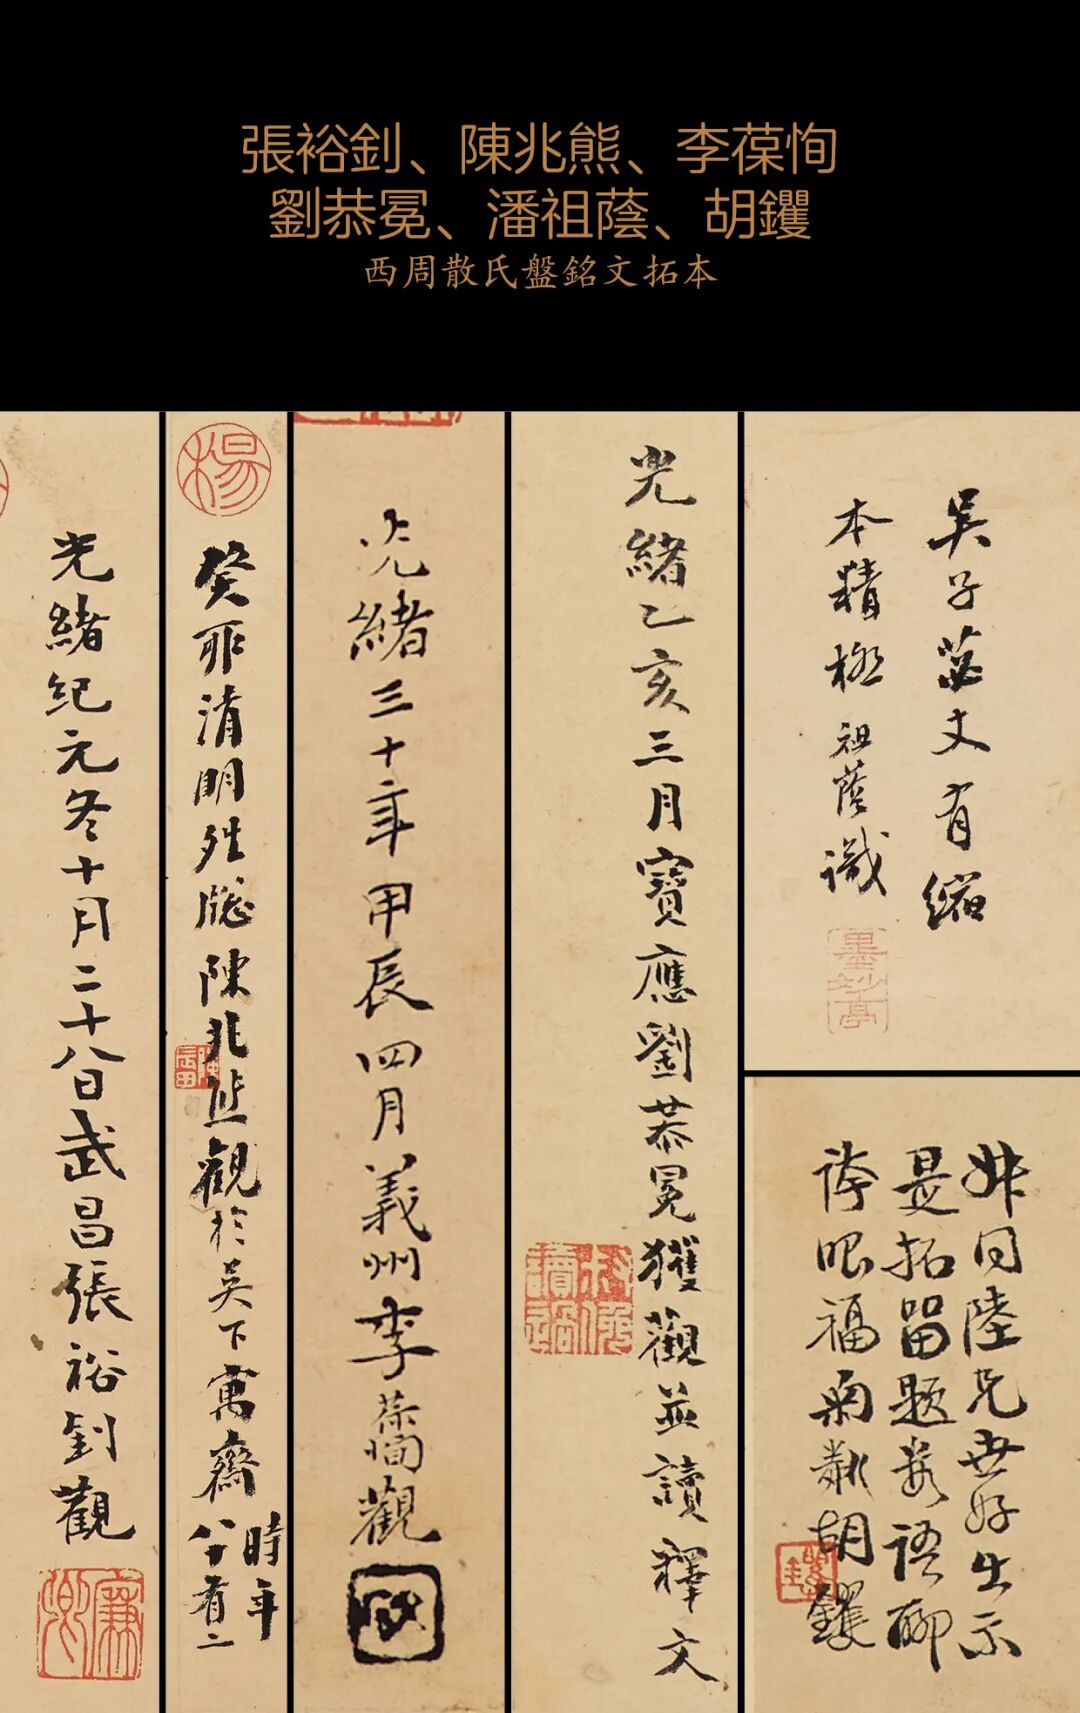 張裕釗、陳兆熊、李葆恂
劉恭冕、潘祖蔭、胡钁
西周散氏盤銘文拓本
吳子苾文有縮
本精極 祖蔭識
墨妙亭
光緒乙亥三月寶應劉恭冕獲觀並讀釋文
光緒三十年甲辰四月義州李葆恂觀
楊
癸耶清明
陳兆熊觀於吳下寓齋
時年
八十有二
光緒紀元冬十月二十八日武昌張裕釗觀
廉卿
同陸兄世好出示
是拓留題數語聊
誇眼福菊鄰胡钁